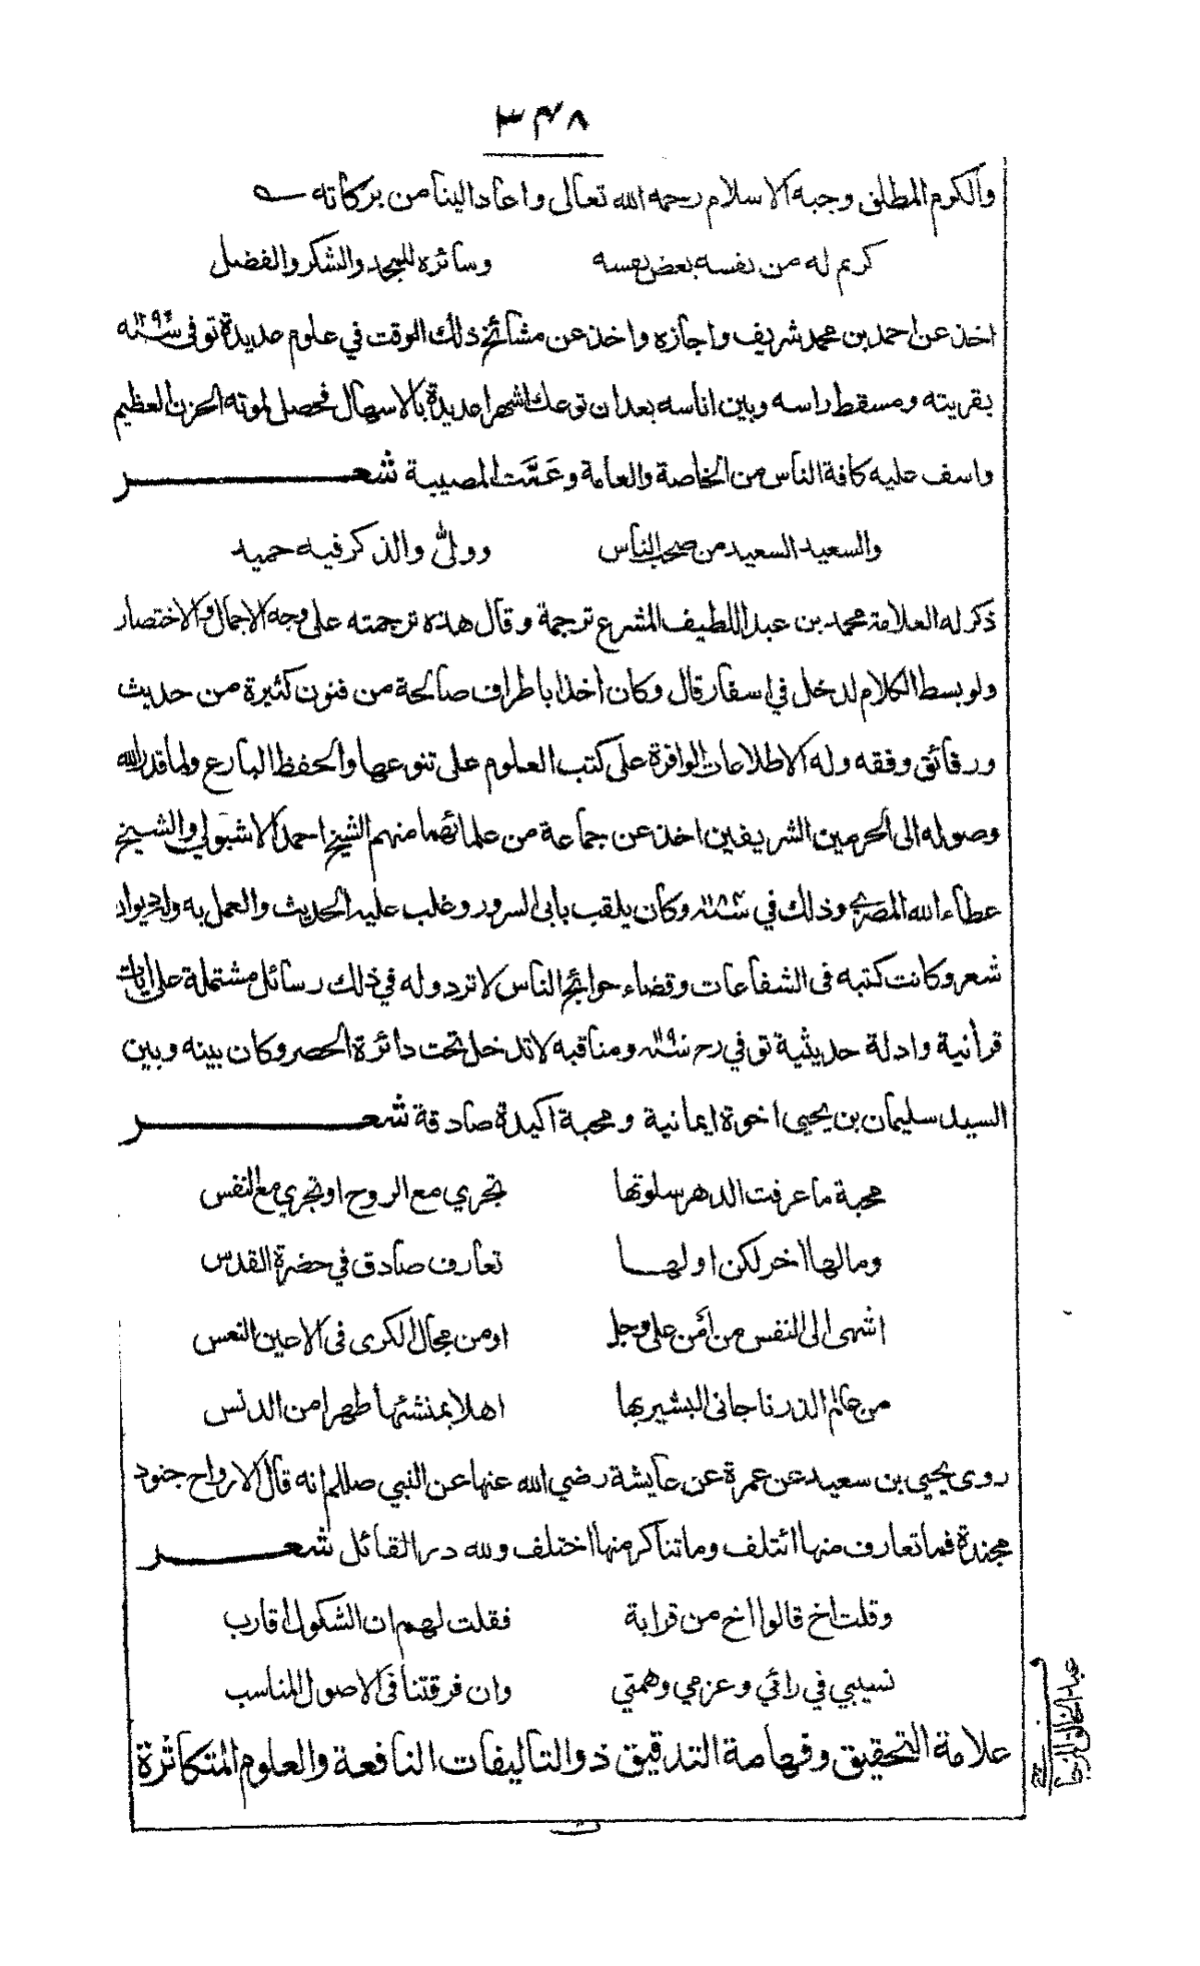 ۳۴۸
والكرم المطلق وجبه الاسلام رحمه الله تعالى واعاد الينا من بركاته
كريم له من نفسه بعض نفسه وسائره للمجد والشكر والفضل
اخذ عن احمد بن محمد شريف واجازه واخذ عن مشائخ ذلك الوقت في علوم عديدة توفى سنه
بقريته ومسقط راسه وبين اناسه بعد ان توعك اشهرا عديدة بالاسهال فحصل لموته الحزن العظيم
واسف عليه كافة الناس من الخاصة والعامة وعَمَّت المصيبة شعر
والسعيد السعيد من صحب الناس وولىّ والذكر فيه حميد
ذكر له العلامة محمد بن عبد اللطيف المشرع ترجمة وقال هذه ترجمته على وجه الاجمال والاختصار
ولو بسط الكلام لدخل في اسفار قال وكان أخذا باطراف صالحة من فنون كثيرة من حديث
ورقائق وفقه وله الاطلاعات الوافرة على كتب العلوم على تنوعها والحفظ البارع ولما قدر الله
وصوله الى الحرمين الشريفين اخذ عن جماعة من علمائهما منهم الشيخ احمد الاشبولي والشيخ
عطاء الله المصري وذلك في سنه وكان يلقب بابى السرور وغلب عليه الحديث والعمل به وله ديوان
شعر وكانت كتبه فى الشفاعات وقضاء حوائج الناس لا ترد وله في ذلك رسائل مشتملة على ايات
قرأنية وادلة حديثية توفي رح سنه ومناقبه لا تدخل تحت دائرة الحصر وكان بينه وبين
السيد سليمان بن يحيى اخوة ايمانية ومحبة اكيدة صادقة شعر
محبة ما عرفت الدهر سلوتها تجري مع الروح او تجري مع النفس
وما لها اخر لكن اولها تعارف صادق في حضرة القدس
اشهى الى النفس من أمن على وجل او من مجال الكرى فى الاعين النعس
من عالم الذر ناجانى البشير بها اهلا بمنشئها طهرا من الدنس
روى يحيى بن سعيد عن عمرة عن عايشة رضي الله عنها عن النبي صللم انه قال الارواح جنود
مجندة فما تعارف منها ائتلف وما تناكر منها اختلف ولله در القائل شعر
وقلت اخ قالوا اخ من قرابة فقلت لهم ان الشكول اقارب
نسيبي في رائي وعزمي وهمتي وان فرقتنا فى الاصول المناسب
علامة التحقيق وفهامة التدقيق ذو التاليفات النافعة والعلوم المتكاثرة
عبد الخالق